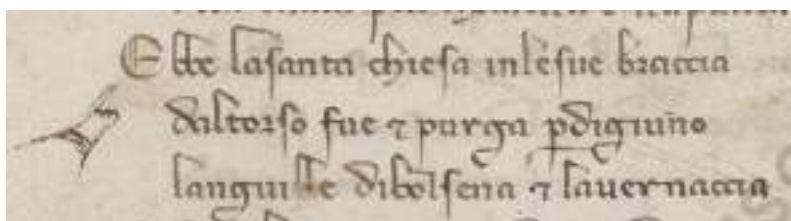 Ebbe lasanta chiesa inlesue braccia
daltorso fue ⁊ purga ꝑdigiuno
languille dibolsena ⁊ lauernaccia